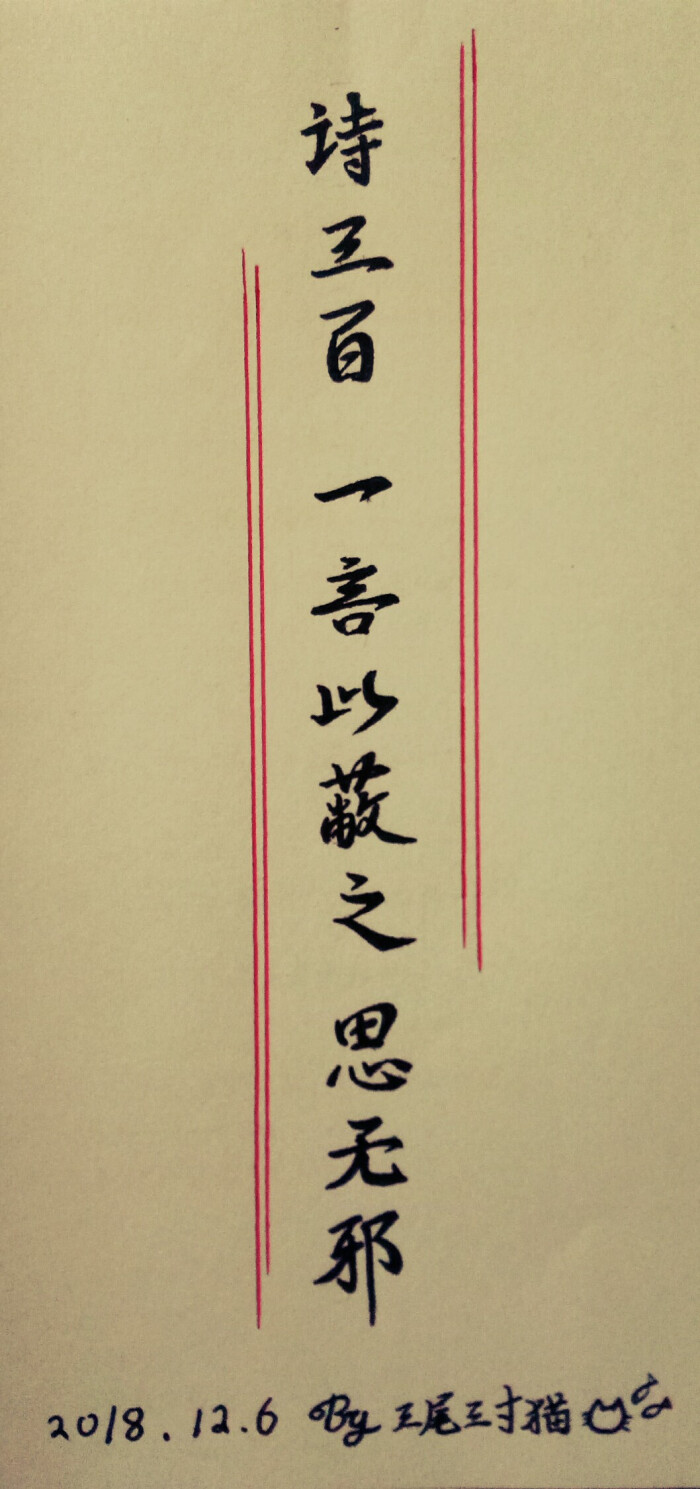 詩三百 一言以蔽之 思无邪
2018.12.6 By 三尾三寸猫